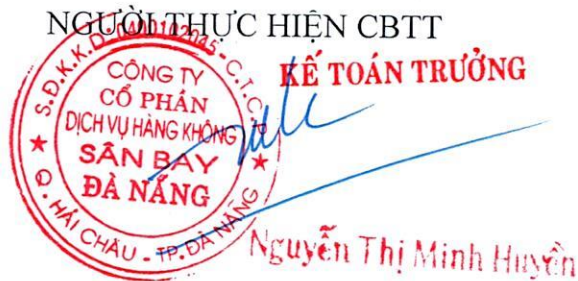 NGƯỜI THỰC HIỆN CBTT
KẾ TOÁN TRƯỞNG
S.Đ.K.K.D: 0400102045 - C.T.C.P
CÔNG TY
CỔ PHẦN
DỊCH VỤ HÀNG KHÔNG
SÂN BAY
ĐÀ NẴNG
Q. HẢI CHÂU - TP. ĐÀ NẴNG
Nguyễn Thị Minh Huyền